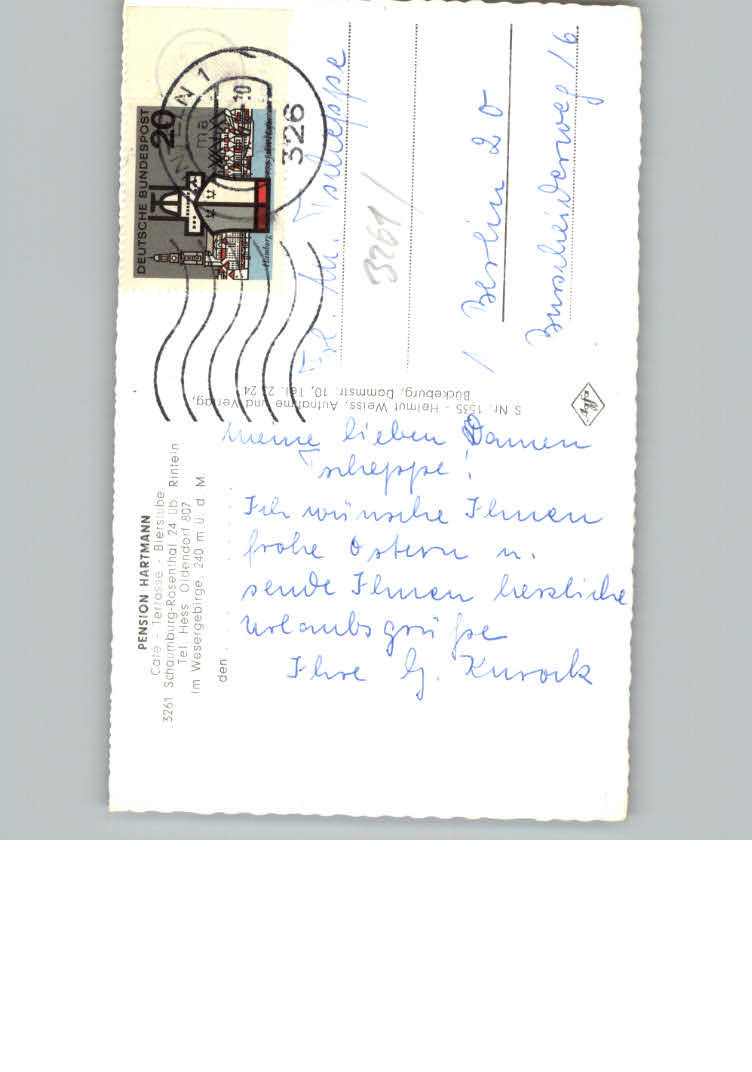 PENSION HARTMANN
Café - Terrasse - Bierstube
3261 Schaumburg-Rosenthal 24 Üb Rinteln
Tel Hess Oldendorf 807
im Wesergebirge, 240 m ü. d M
den
Meine lieben Damen
Tscheppe!
Ich wünsche Ihnen
frohe Ostern u.
sende Ihnen herzliche
Urlaubsgrüße
Ihre G. Kurock
S Nr. 1535 - Helmut Weiss, Aufnahme und Verlag,
Bückeburg, Dammstr. 10, Tel. 23 24
DEUTSCHE BUNDESPOST
20
Hamburg
326
Tscheppe
3261/
1 Berlin 20
Burscheiderweg 16